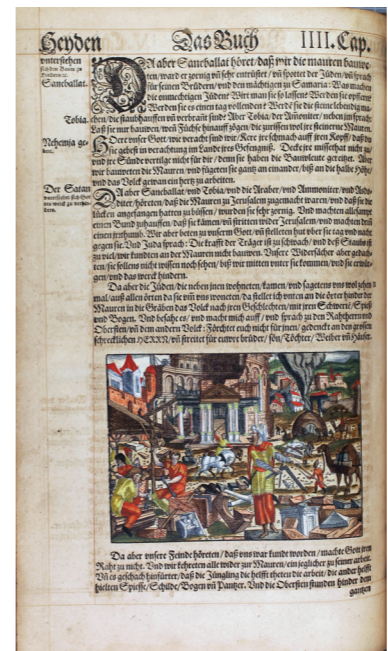 Heyden Das Buch IIII. Cap.
vnterstehen
Saneballat.
Tobia.
Nehemja ge-
bet.
Der Satan
DA aber Saneballat höret/ daß wir die mauren bauwe-
ten/ ward er zornig vñ sehr entrüstet/ vñ spottet der Jüden/ vñ sprach
für seinen Brüdern/ vnd den mächtigen zu Samaria: Was machen
die onmechtigen Jüden? Wirt man sie so lassen? Werden sie opffern?
Werden sie es einen tag vollenden? Werdē sie die steine lebendig ma-
chen/ die staubhauffen vnd verbrant sind? Aber Tobia/ der Am̄oniter/ neben jm sprach:
Laß sie nur bauwen/ wen Füchse hinauff zögen/ die zurissen wol jre steinerne Mauren.
Höre vnser Gott/ wie veracht sind wir/ Kere jre schmach auff jren Kopff/ daß du
sie gebest in verachtung im Lande jres Gefengniß. Decke jre missethat nicht zu/
vnd jre Sünde vertilge nicht für dir/ denn sie haben die Bauwleute gereitzt. Aber
wir bauweten die Mauren/ vnd fügeten sie gantz an einander/ biß an die halbe Höhe/
vnd das Volck gewan ein hertz zu arbeiten.
DA aber Saneballat/ vnd Tobia/ vnd die Araber/ vnd Ammoniter/ vnd Asdo-
diter/ höreten/ daß die Mauren zu Jerusalem zugemacht waren/ vnd daß sie die
lücken angefangen hatten zu büssen/ wurden sie sehr zornig. Vnd machten allesampt
einen Bund zuhauffen/ daß sie kämen/ vñ stritten wider Jerusalem/ vnd machten drinn
einen jrrthumb. Wir aber beten zu vnserm Gott/ vñ stelleten hut vber sie tag vnd nacht
gegen sie. Vnd Juda sprach: Die krafft der Träger ist zu schwach/ vnd deß Staubs ist
zu viel/ wir kundten an der Mauren nicht bauwen. Vnsere Widersächer aber gedach-
ten/ sie sollens nicht wissen noch sehen/ biß wir mitten vnter sie kommen/ vnd sie erwür-
gen/ vnd das werck hindern.
Da aber die Jüden/ die neben jnen wohneten/ kamen/ vnd sagetens vns wol zehen
mal/ auß allen örten da sie vm̄ vns woneten/ da stellet ich vnten an die örter hinder der
Mauren in die Gräben das Volck nach jren Geschlechten/ mit jren Schwerten/ Spieß
vnd Bogen. Vnd besahe es/ vnd macht mich auff/ vnd sprach zu den Rahtherrn vnd
Obersten/ vñ dem andern Volck: Förchtet euch nicht für jnen/ gedenckt an den grossen
schrecklichen HERRN/ vñ streitet für euwre brüder/ sön/ Töchter/ Weiber vñ Häuser.
Da aber vnsere Feinde höreten/ daß vns war kundt worden/ machte Gott jren
Raht zu nicht. Vnd wir kehreten alle wider zur Mauren/ ein jeglicher zu seiner arbeit.
Vñ es geschach hinfürter/ daß die Jüngling die helfft theten die arbeit/ die ander helfft
hielten Spiesse/ Schilde/ Bogen vñ Pantzer. Vnd die Obersten stunden hinder dem
gantzen